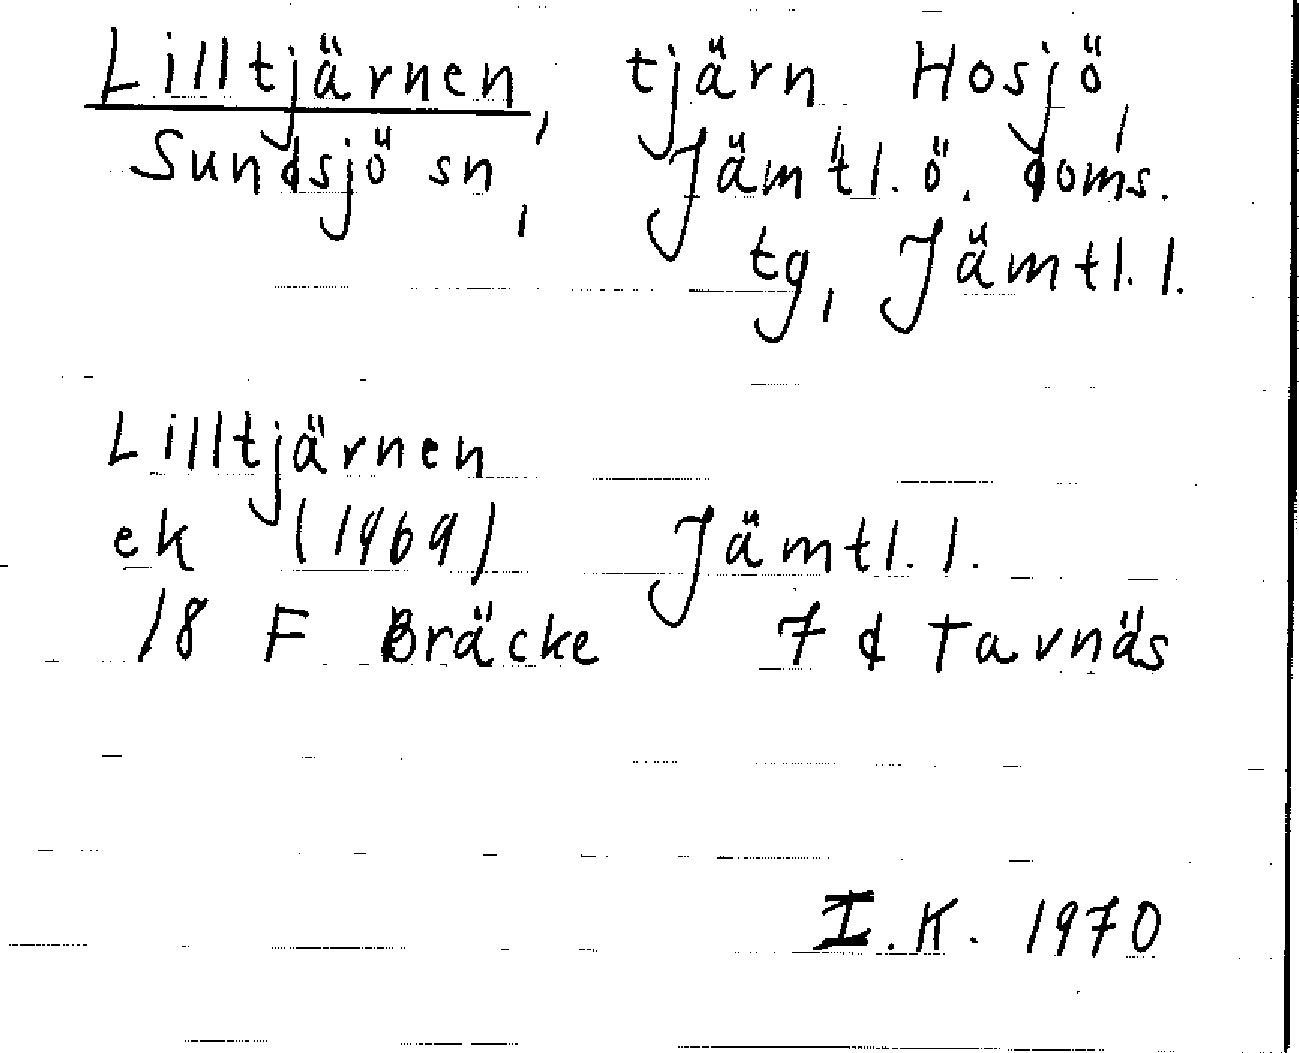 Lilltjärnen, tjärn Hosjö,
Sundsjö sn, Jämtl. ö. doms.
tg, Jämtl. l.
Lilltjärnen
ek (1969) Jämtl. l.
18 F Bräcke 7 d Tavnäs
I.K. 1970